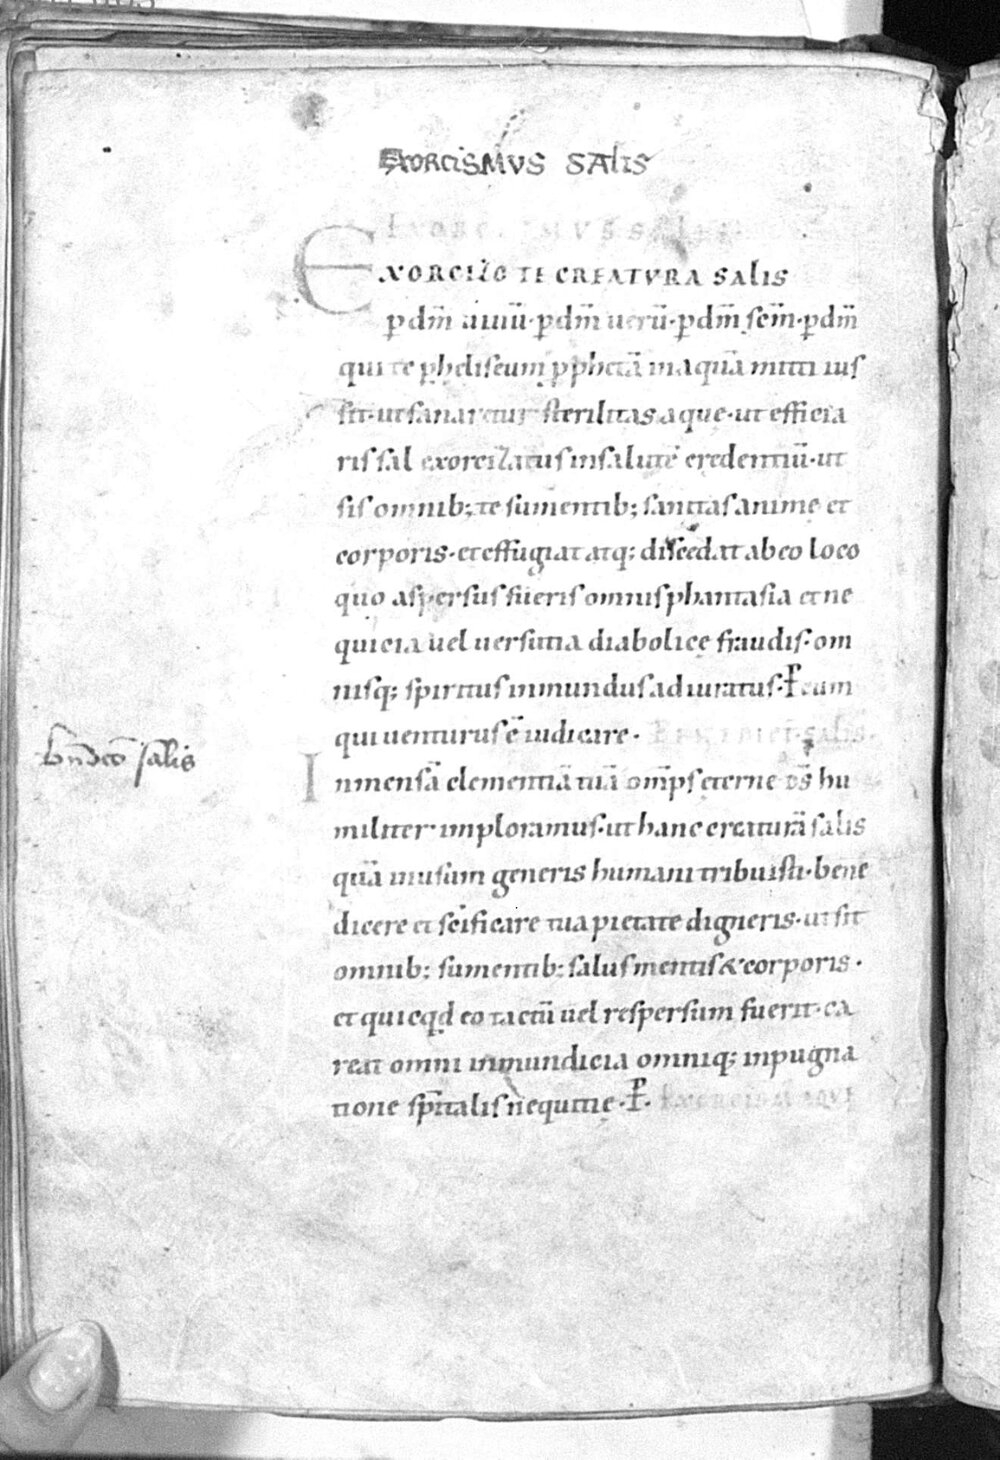 EXORCISMVS SALIS
EXORCISMVS SALIS
EXORCIZO TE CREATVRA SALIS
p dm̄ uiuū·p dm̄ uerū·p dm̄ scm̄·p dm̄
qui te p heliseum pphetā in aquā mitti ius
sit·ut sanaretur sterilitas aque·ut efficia
ris sal exorcizatus in salutē credentiū·ut
sis omnib; te sumentib; sanitas anime et
corporis·et effugiat atq; discedat ab eo loco
quo aspersus fueris omnis phantasia et ne
quicia uel uersutia diabolice fraudis·om
nisq; spiritus inmundus adiuratus·P̄ eum
qui uenturus ē iudicare· BENEDICT· SALIS·
bn̄dictō salis
Inmensā clementiā tuā omp̄s eterne d̄s hu
militer imploramus·ut hanc creaturā salis
quā in usum generis humani tribuisti·bene
dicere et sc̄ificare tua pietate digneris·ut sit
omnib; sumentib; salus mentis & corporis·
et quicqd eo tactū uel respersum fuerit·ca
reat omni inmundicia omniq; inpugna
tione spīritalis nequitie·P̄· EXORCISM̄ AQVE